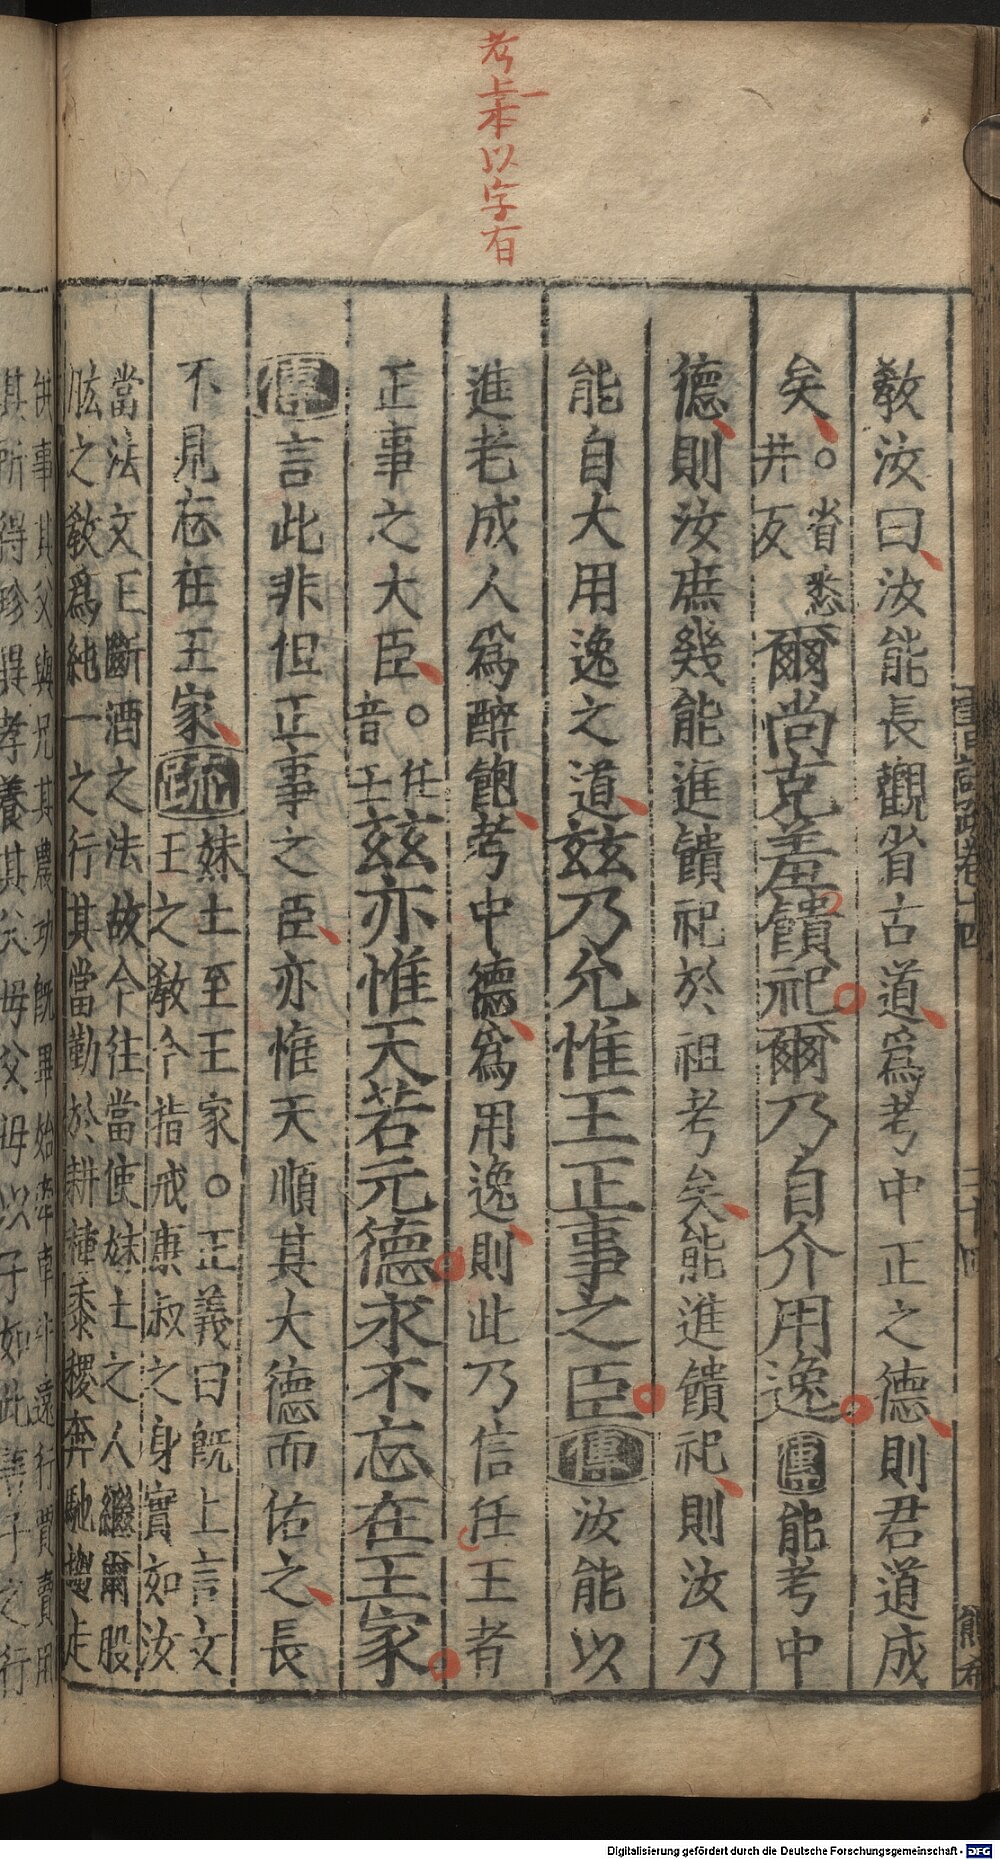 考上本以字有
教汝曰汝能長觀省古道爲考中正之德則君道成
矣。省悉
井反
爾尚克羞饋祀爾乃自介用逸傳能考中
德則汝庶幾能進饋祀於祖考矣能進饋祀則汝乃
能自大用逸之道茲乃允惟王正事之臣傳汝能以
進老成人爲醉飽考中德爲用逸則此乃信任王者
正事之大臣。任
音壬
茲亦惟天若元德永不忘在王家
傳言此非但正事之臣亦惟天順其大德而佑之長
不見忘在王家疏
妹土至王家。正義曰旣上言文
王之教今指戒康叔之身實如汝
當法文王斷酒之法故今往當使妹土之人繼爾股
肱之教爲純一之行其當勤於耕種黍稷奔馳趨走
供事其父與兄其農功旣畢始牽車牛遠行賈賣用
其所得珍異孝養其父母父母以子如此善子之行
Digitalisierung gefördert durch die Deutsche Forschungsgemeinschaft - DFG